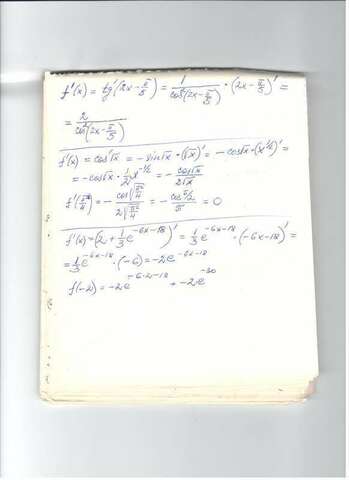 f'(x) = tg'(2x - π/5) = 1/cos²(2x - π/5) · (2x - π/5)' =
= 2/cos²(2x - π/5)
f'(x) = cos'√x = -sin√x · (√x)' = -cos√x · (x^1/2)' =
= -cos√x · 1/2 x^-1/2 = - cos√x/2√x
f'(π²/4) = - cos√π²/4 / 2√π²/4 = - cos π/2 / π = 0
f'(x) = (2 + 1/3 e^-6x-18)' = 1/3 e^-6x-18 · (-6x-18)' =
= 1/3 e^-6x-18 · (-6) = -2e^-6x-18
f(-2) = -2e^-6·2-18 = -2e^-30